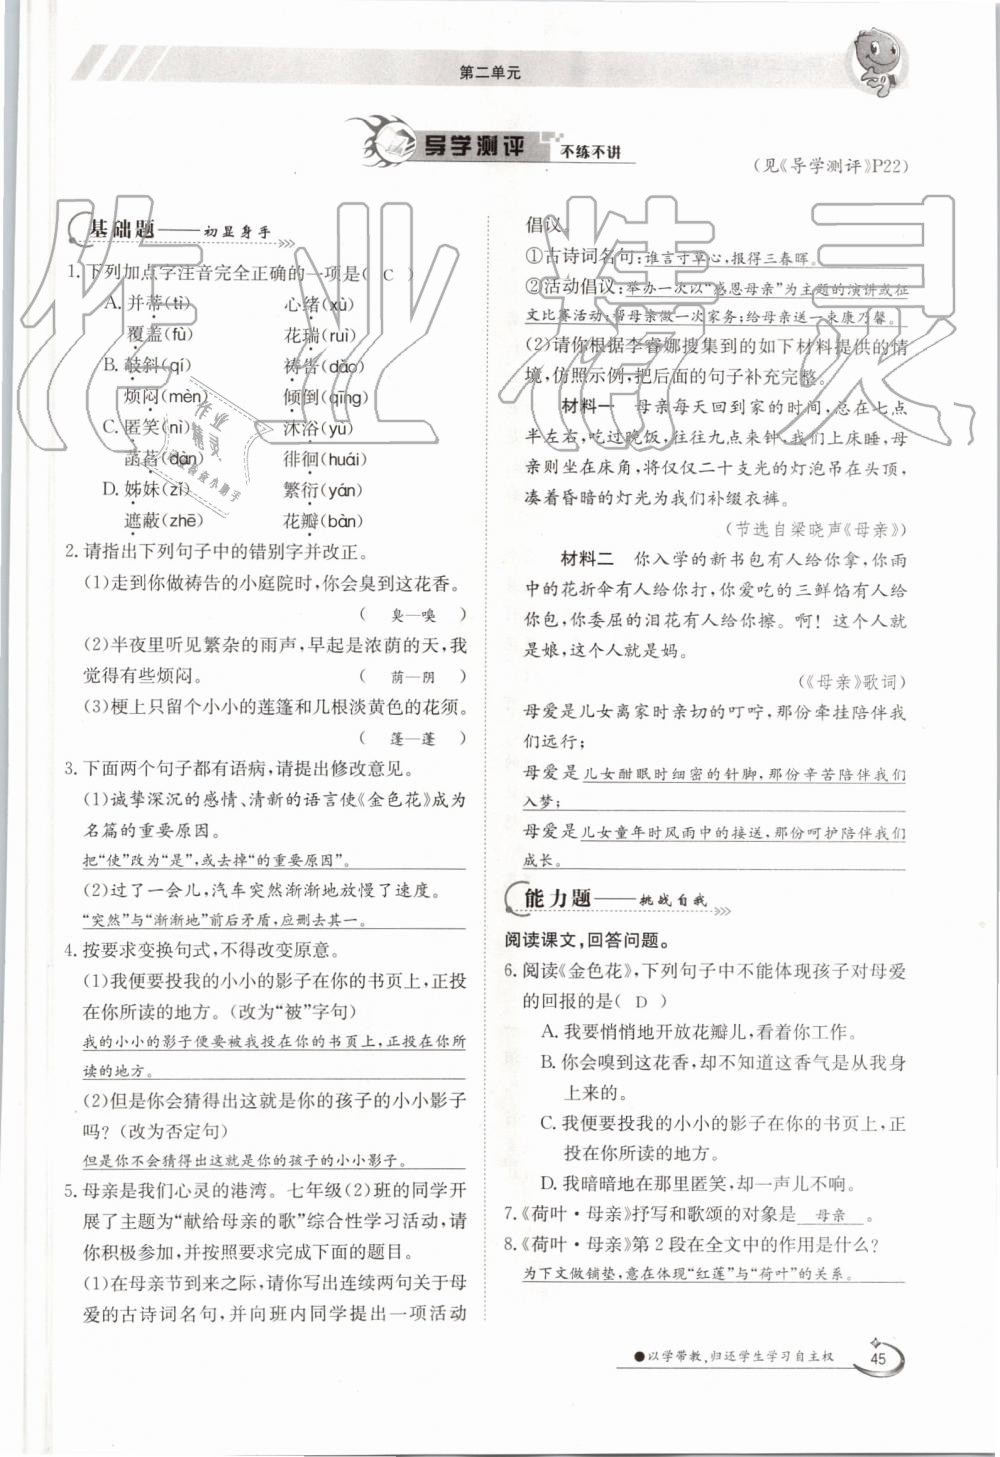 第二单元
导学测评 不练不讲
(见《导学测评》P22)
基础题——初显身手
1. 下列加点字注音完全正确的一项是( C )
A. 并蒂(tì) 心绪(xù)
覆盖(fù) 花瑞(ruì)
B. 敧斜(qí) 祷告(dǎo)
烦闷(mèn) 倾倒(qīng)
C. 匿笑(nì) 沐浴(yù)
菡萏(dàn) 徘徊(huái)
D. 姊妹(zǐ) 繁衍(yán)
遮蔽(zhē) 花瓣(bàn)
2. 请指出下列句子中的错别字并改正。
(1)走到你做祷告的小庭院时,你会臭到这花香。
( 臭—嗅 )
(2)半夜里听见繁杂的雨声,早起是浓荫的天,我
觉得有些烦闷。 ( 荫—阴 )
(3)梗上只留个小小的莲篷和几根淡黄色的花须。
( 篷—蓬 )
3. 下面两个句子都有语病,请提出修改意见。
(1)诚挚深沉的感情、清新的语言使《金色花》成为
名篇的重要原因。
把“使”改为“是”,或去掉“的重要原因”。
(2)过了一会儿,汽车突然渐渐地放慢了速度。
“突然”与“渐渐地”前后矛盾,应删去其一。
4. 按要求变换句式,不得改变原意。
(1)我便要投我的小小的影子在你的书页上,正投
在你所读的地方。(改为“被”字句)
我的小小的影子便要被我投在你的书页上,正投在你所
读的地方。
(2)但是你会猜得出这就是你的孩子的小小影子
吗?(改为否定句)
但是你不会猜得出这就是你的孩子的小小影子。
5. 母亲是我们心灵的港湾。七年级(2)班的同学开
展了主题为“献给母亲的歌”综合性学习活动,请
你积极参加,并按照要求完成下面的题目。
(1)在母亲节到来之际,请你写出连续两句关于母
爱的古诗词名句,并向班内同学提出一项活动
倡议。
①古诗词名句:谁言寸草心,报得三春晖。
②活动倡议:举办一次以“感恩母亲”为主题的演讲或征
文比赛活动;帮母亲做一次家务;给母亲送一束康乃馨。
(2)请你根据李睿娜搜集到的如下材料提供的情
境,仿照示例,把后面的句子补充完整。
材料一 母亲每天回到家的时间,总在七点
半左右,吃过晚饭,往往九点来钟,我们上床睡,母
亲则坐在床角,将仅仅二十支光的灯泡吊在头顶,
凑着昏暗的灯光为我们补缀衣裤。
(节选自梁晓声《母亲》)
材料二 你入学的新书包有人给你拿,你雨
中的花折伞有人给你打,你爱吃的三鲜馅有人给
你包,你委屈的泪花有人给你擦。啊!这个人就
是娘,这个人就是妈。
(《母亲》歌词)
母爱是儿女离家时亲切的叮咛,那份牵挂陪伴我
们远行;
母爱是儿女酣眠时细密的针脚,那份辛苦陪伴我们
入梦;
母爱是儿女童年时风雨中的接送,那份呵护陪伴我们
成长。
能力题——挑战自我
阅读课文,回答问题。
6. 阅读《金色花》,下列句子中不能体现孩子对母爱
的回报的是( D )
A. 我要悄悄地开放花瓣儿,看着你工作。
B. 你会嗅到这花香,却不知道这香气是从我身
上来的。
C. 我便要投我的小小的影子在你的书页上,正
投在你所读的地方。
D. 我暗暗地在那里匿笑,却一声儿不响。
7.《荷叶·母亲》抒写和歌颂的对象是 母亲 。
8.《荷叶·母亲》第2段在全文中的作用是什么?
为下文做铺垫,意在体现“红莲”与“荷叶”的关系。
●以学带教,归还学生学习自主权 45
作业精灵
作业精灵